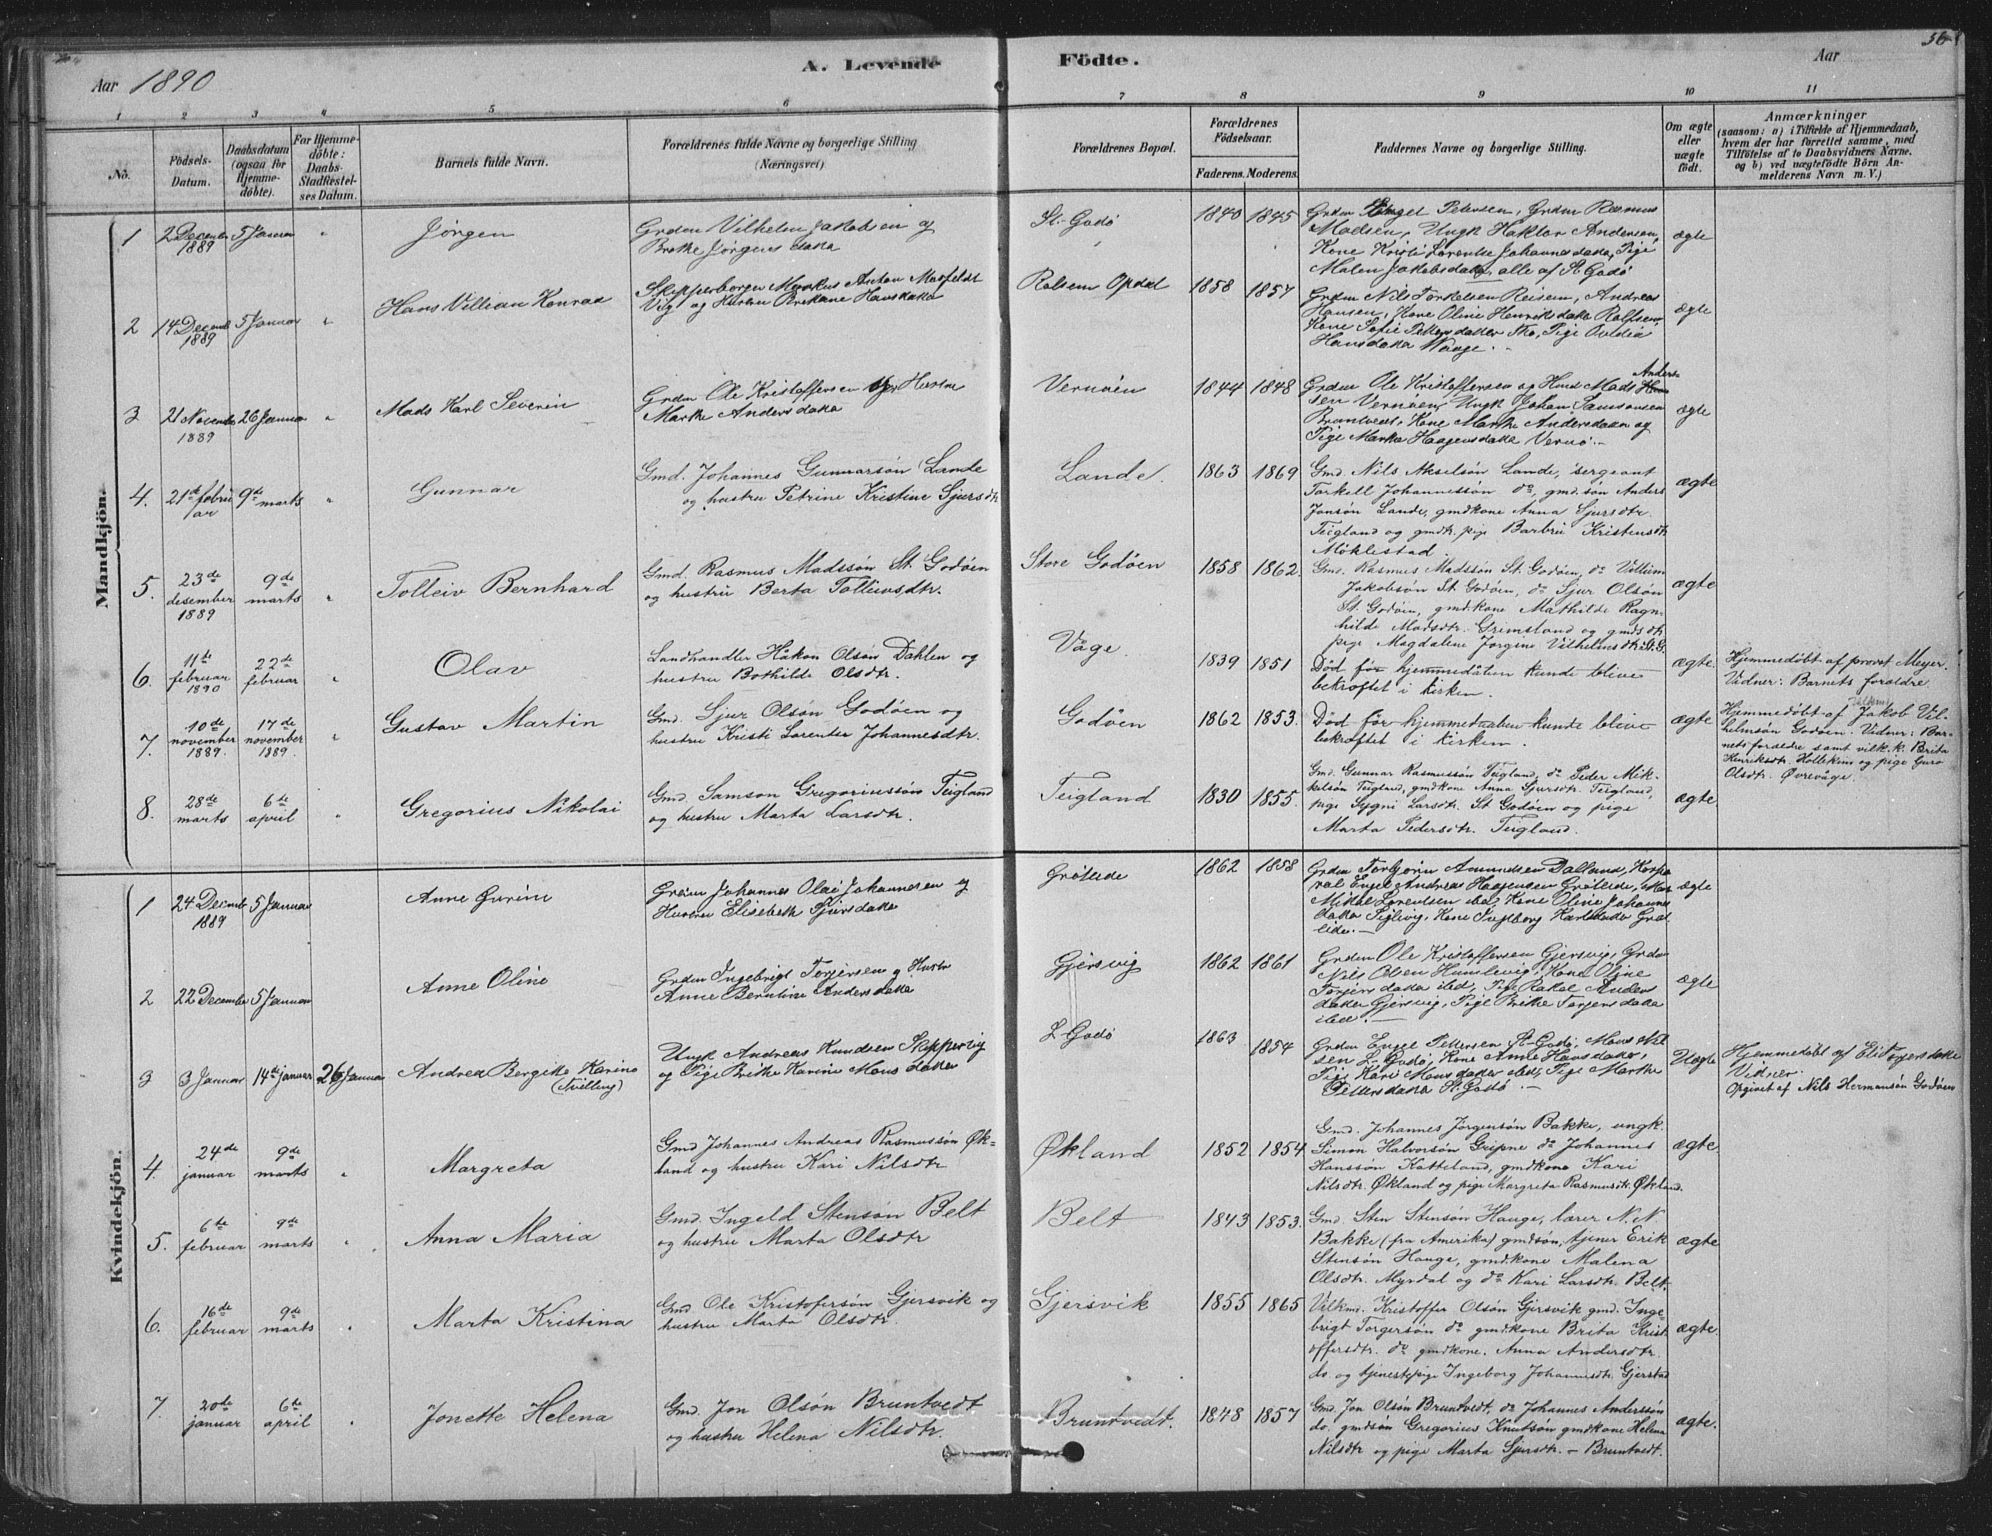 Aar 1890
A. Levende Födte.
Aar
56
1 2 3 4 5 6 7 8 9 10 11
No.
Födsels-Datum.
Daabsdatum (ogsaa for Hjemmedöbte).
For Hjemmedöbte: Daabs-Stadfæstelses Datum.
Barnets fulde Navn.
Forældrenes fulde Navne og borgerlige Stilling (Næringsvei)
Forældrenes Bopæl.
Forældrenes Födselsaar.
Faderens. Moderens.
Faddernes Navne og borgerlige Stilling.
Om ægte eller uægte födt.
Anmærkninger
(saasom: a) i Tilfælde af Hjemmedaab, hvem der har forrettet samme, med Tilföielse af to Daabsvidners Navne. og b) ved uægtefödte Börn Anmelderens Navn m.V.)
Mandkjön.
1 2 December 1889 5 Januar " Jörgen
Grdm Vilhelm Jakobsen og
Brethe Jörgensdatter
St. Godö 1840 1845
Grdm Engel Petersen, Grdm Rasmus
Madsen, Ungk Haktor Andersen,
Kone Kristi Lorentse Johannesdatter, Pige
Malen Jakobsdatter alle af St Godö
ægte
2 14 Decemb 1889 5 Januar " Hans Villian Konrad
Skipperborger Markus Anton
Vig og Hustru Brethane Hansdatter
Opdal 1858 1857
Grdm Nils Torkelsen Reisem, Andreas
Hansen, Kone Oline Henriksdatter
Kone Sofie Pettersdatter Pige Ovidia
Hansdatter Waage.
ægte
3 21 November 1889 26 Januar " Mads Karl Severin
Grdm Ole Kristoffersen og Hustru
Marthe Andersdatter
Vernöen 1844 1848
Grdm Ole Kristoffersen og Husm Mads Anders-
sen Vernöen, Ungk Johan Samsonsen
Bruntvedt, Kone Marthe Andersdatter og
Pige Martha Haagensdatter Vernö.
ægte
4. 21de februar 9de marts " Gunnar
Gmd. Johannes Gunnarsön Lande
og hustru Petrine Kristine Sjursdtr
Lande. 1863 1869
Gmd. Nils Akselsön Lande, sergeant
Torkell Johannessön do, gmd.sön Anders
Jonsön Lande, gmdkone Anna Sjursdtr.
Teigland og gmdtr. pige Barbru Kristensdtr
Möklestad.
ægte
5. 23de desember 1889 9de marts " Tolleiv Bernhard
Gmd. Rasmus Madssön St. Godöen
og hustru Berta Tolleivsdtr.
Store Godöen 1858 1862.
Gmd. Rasmus Madssön St. Godöen, do Villum
Jakobsön St. Godöen, do Sjur Olsön
St. Godöen, gmdkone Mathilde Ragn-
hilde Madsdtr. Grimsland og gmdsdtr
pige Magdalene Jörgine Vilhelmsdtr. St. G.
ægte
6. 11te februar 1890 22de februar " Olav
Landhandler Håkon Olsön Dahlen og
hustru Bothilde Olsdtr.
Våge. 1839 1851
Död för hjemmedåben kunde blive
bekræftet i kirken.
ægte.
Hjemmedöbt af provst Meyer.
Vidner: Barnets forældre.
7. 10de november 1889. 17de november 1889. " Gustav Martin
Gmd. Sjur Olsön Godöen og
hustru Kristi Lorentse Johannesdtr.
Godöen 1862 1853.
Död för hjemmedaaben kunde blive
bekræftet i kirken.
ægte
Hjemmedöbt af Jakob Vil-
helmsön Godöen. Vidner: Bar-
nets forældre samt vilk.k. Brita
Henriksdtr. Hollekim og pige Guro
Olsdtr. Övrevåge.
8. 28de marts 6te april " Gregorius Nikolai
Gmd. Samson Gregoriussön Teigland
og hustru Marta Larsdtr.
Teigland 1830 1855.
Gmd. Gunnar Rasmussön Teigland, do Peder Mik-
kelsön Teigland, gmdkone Anna Sjursdtr. Teigland,
pige Sygni Larsdtr. St Godöen og pige
Marta Pedersdtr. Teigland.
ægte
Kvindekjön.
1 24 December 1889 5 Januar Anne Gurine
Grdm Johannes Olai Johannesen og
Hustru Elisebeth Sjursdatter
Gröteide 1862 1858
Grdm Torbjörn Amundsen Dalland, Korpo-
ral Engel Andreas Haagensen Gröteide,
Mikal Lorentsen ibd, Kone Oline Johannes
datter Teglevig, Kone Ingeborg Karlsdatter Gröt-
eide.
ægte
2 22 December 5 Januar Anne Oline
Grdm Ingebrigt Torjersen og Hustr
Anne Berntine Andersdatter
Gjersvig 1862 1861
Grdm Ole Kristoffersen Gjersvig, Grdm
Nils Olsen Humlevig, Kone Oline
Torjersdatter ibd, Pige Rakel Anders
datter Gjersvig, Pige Brithe Torjersdatter
ibd.
ægte
3 3 Januar 14de januar 26 Januar Andrea Bergithe Karine
(Tvilling)
Ungk Andreas Knudsen Skippervig
og Pige Brithe Karine Monsdatter
L Godö 1863 1854
Grdm Engel Pettersen St. Godö, Mons Nil
sen L. Godö, Kone Anne Hansdatter,
Pige Kari Monsdatter ibd, Pige Marthe
Pettersdatter St. Godö.
Uægte
Hjemmedöbt af Eli Torjersdatter
Vidner.
Opgivet af Nils Hermansön Godöen
4. 24de januar 9de marts " Margreta
Gmd Johannes Andreas Rasmussön Øk-
land og hustru Kari Nilsdtr
Økland 1852 1854
Gmd. Johannes Jörgensön Bakke, ungk.
Simon Halvorsön Gripne do Johannes
Hanssön Katteland, gmdkone Kari
Nilsdtr. Økland og pige Margreta Rasmusdtr. Økland.
ægte.
5. 6te februar 9de marts " Anna Maria
Gmd. Ingeld Stensön Belt
og hustru Marta Olsdtr
Belt 1843 1853.
Gmd. Sten Stensön Hauge, lærer N.N.
Bakke (fra Amerika) gmdsön, tjener Erik
Stensön Hauge, gmdkone Malena
Olsdtr. Myrdal og do Kari Larsdtr. Belt.
ægte
6. 16de februar 9de marts " Marta Kristina
Gmd Ole Kristofersön Gjersvik og
hustru Marta Olsdtr
Gjersvik 1855 1865
Vilkmd. Kristoffer Olsön Gjersvik gmd. Inge-
brigt Torgersön do gmdkone Brita Krist-
offersdtr. do gmdkone. Anna Andersdtr.
do. og tjenestepige Ingeborg Johannesdtr. Gjerstad
ægte.
7. 20de januar 6te april " Jonette Helena
Gmd. Jon Olsön Bruntvedt
og hustru Helena Nilsdtr.
Bruntvedt. 1848 1857
Gmd. Jon Olsön Bruntvedt, do Johannes Anderssön
do. gmdsön Gregorius Knutsön gmdkone Helena
Nilsdtr og pige Marta Sjursdtr. - Bruntvedt.
ægte.